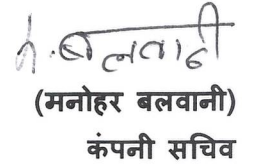 म. बलवानी
(मनोहर बलवानी)
कंपनी सचिव